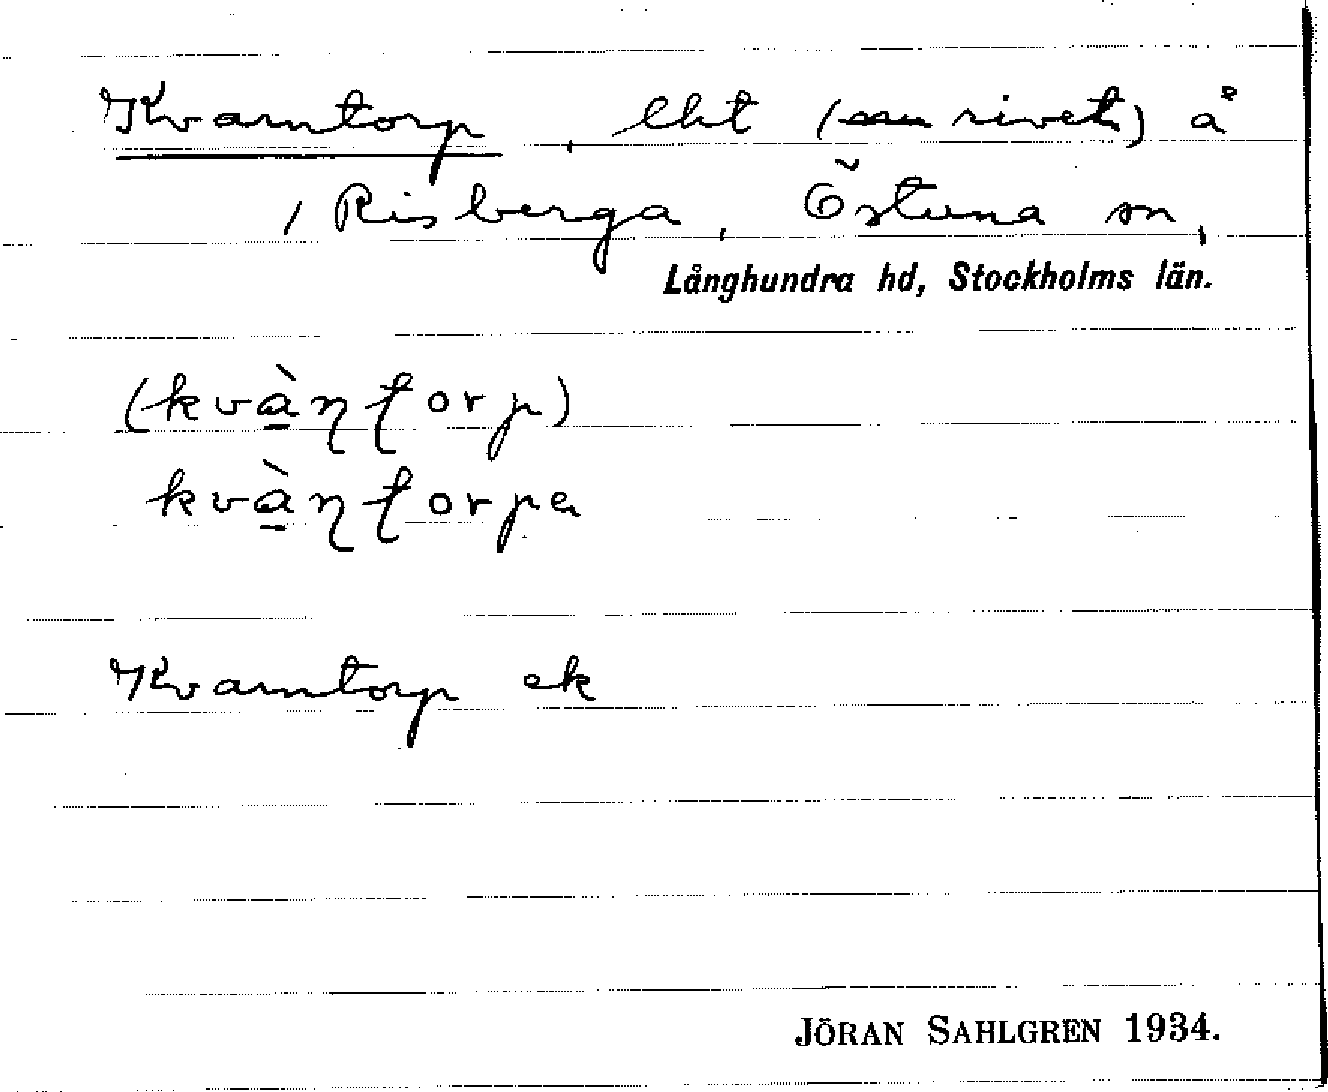 Kvarntorp, lht (rivet) å
, Risberga, Östuna sn,
Långhundra hd, Stockholms län.
(kvà̱ɳʈorp)
kvà̱ɳʈorpa
Kvarntorp ek
JÖRAN SAHLGREN 1934.